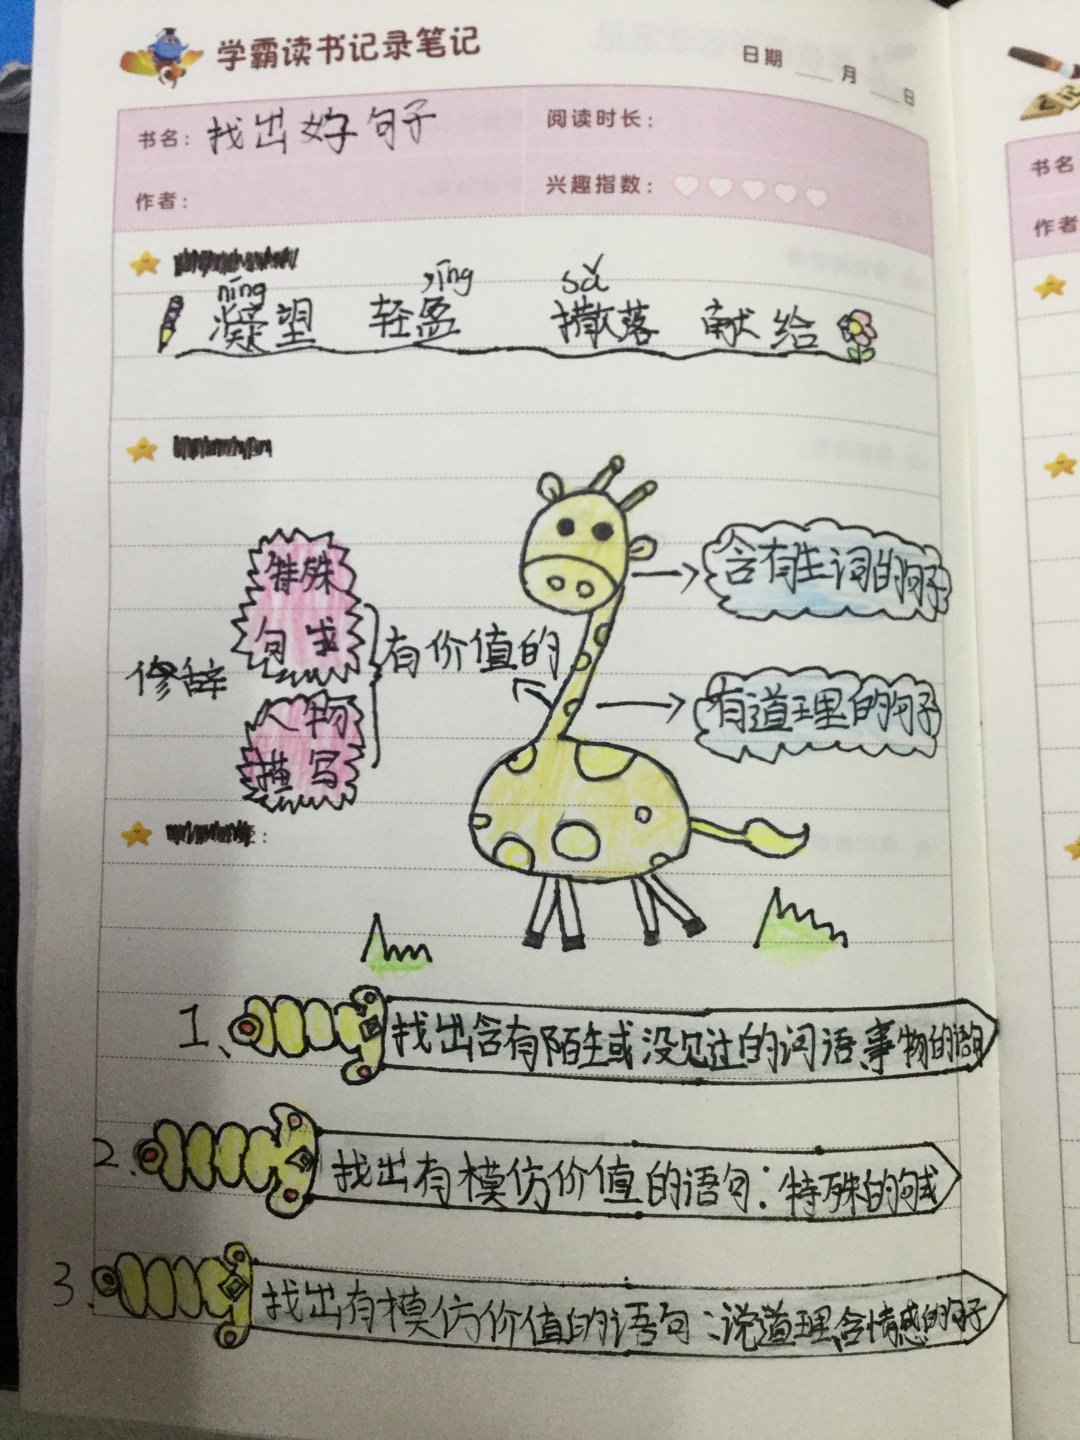 学霸读书记录笔记
日期 月 日
书名：找出好句子
阅读时长：
作者：
兴趣指数：
níng yíng sǎ
凝望 轻盈 撒落 献给
特殊
句式
修辞
人物
描写
有价值的
含有生词的句子
有道理的句子
1、找出含有陌生或没见过的词语事物的语句
2、找出有模仿价值的语句：特殊的句式
3、找出有模仿价值的语句：说道理含情感的句子
书名
作者